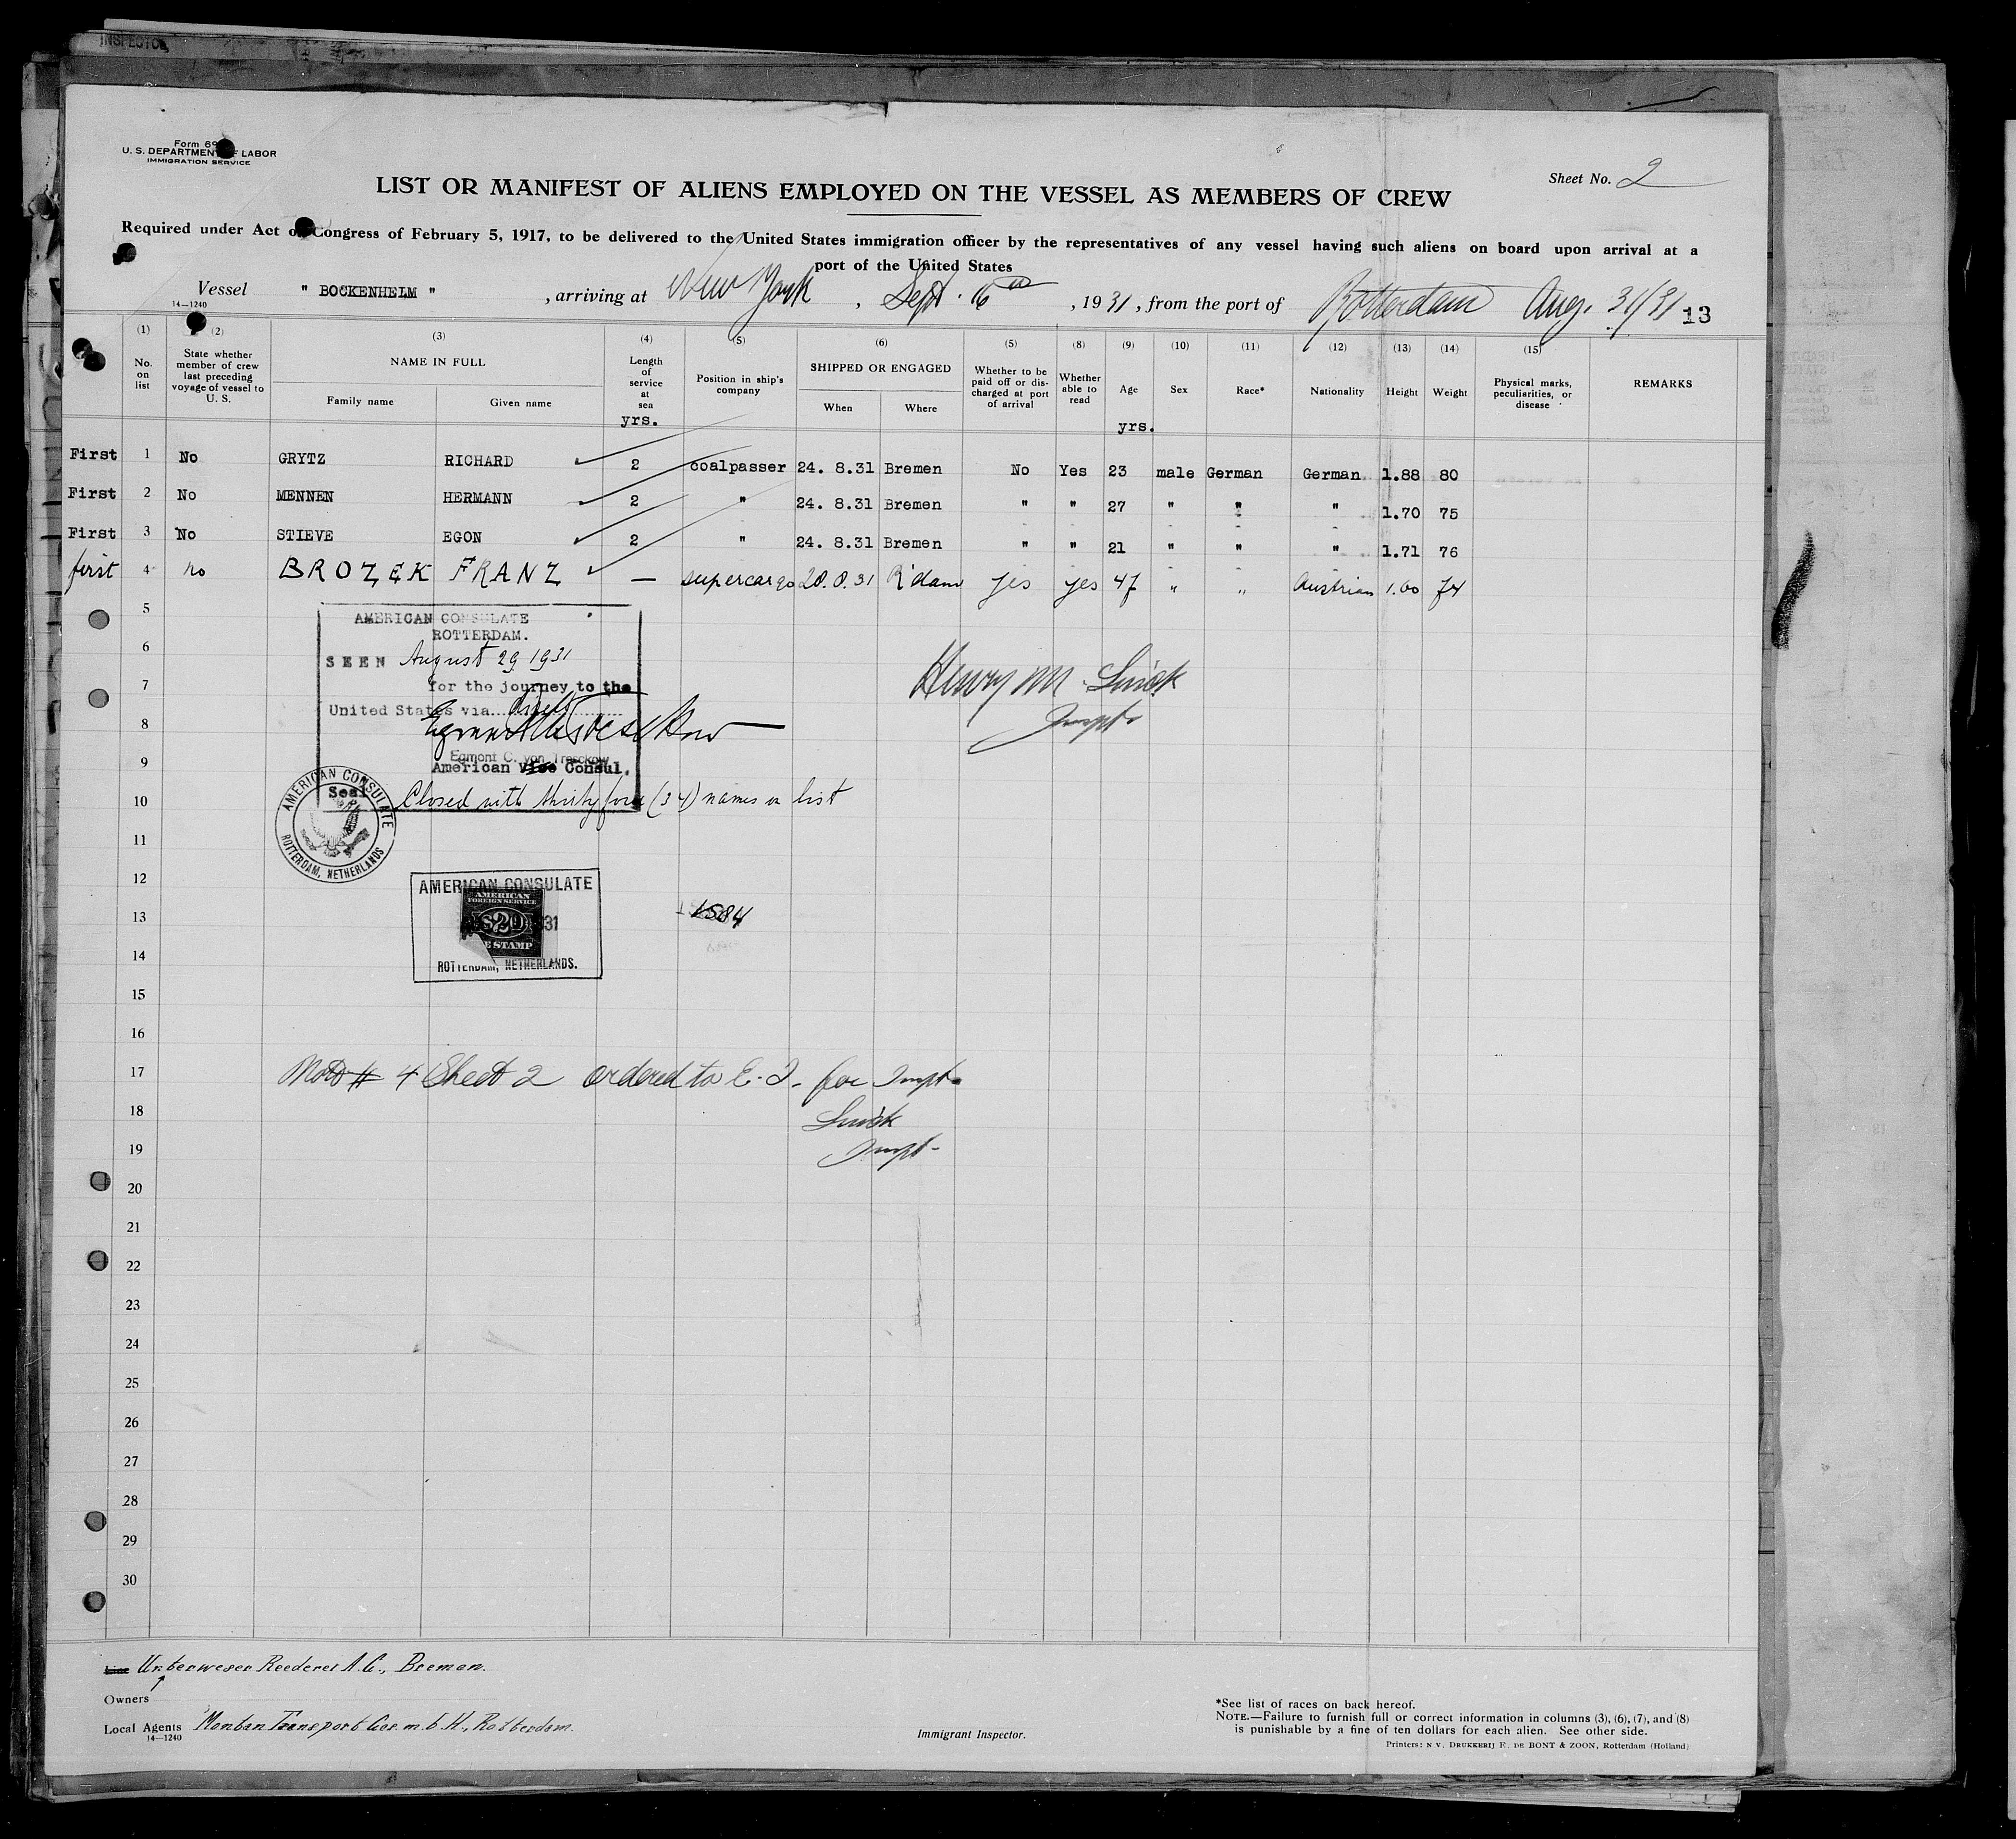 INSPECTOR
Form 69
U. S. DEPARTMENT OF LABOR
IMMIGRATION SERVICE
Sheet No. 2
LIST OR MANIFEST OF ALIENS EMPLOYED ON THE VESSEL AS MEMBERS OF CREW
Required under Act of Congress of February 5, 1917, to be delivered to the United States immigration officer by the representatives of any vessel having such aliens on board upon arrival at a
port of the United States
Vessel " BOCKENHEIM " , arriving at New York , Sept. 16th , 1931 , from the port of Rotterdam Aug. 31/31 13
14—1240
(1) (2) (3) (4) (5) (6) (5) (8) (9) (10) (11) (12) (13) (14) (15)
No. on list
State whether member of crew last preceding voyage of vessel to U. S.
NAME IN FULL
Family name Given name
Length of service at sea
yrs.
Position in ship's company
SHIPPED OR ENGAGED
When Where
Whether to be paid off or discharged at port of arrival
Whether able to read
Age
yrs.
Sex
Race*
Nationality
Height
Weight
Physical marks, peculiarities, or disease
REMARKS
First 1 No GRYTZ RICHARD 2 coalpasser 24. 8.31 Bremen No Yes 23 male German German 1.88 80
First 2 No MENNEN HERMANN 2 " 24. 8.31 Bremen " " 27 " " " 1.70 75
First 3 No STIEVE EGON 2 " 24. 8.31 Bremen " " 21 " " " 1.71 76
first 4 no BROZEK FRANZ — supercargo 28.8.31 R'dam yes yes 47 " " Austrian 1.60 74
5
6
7
8
9
10
11
12
13
14
15
16
17
18
19
20
21
22
23
24
25
26
27
28
29
30
AMERICAN CONSULATE
ROTTERDAM.
SEEN August 29 1931
for the journey to the
United States via
Egmont C. von Tresckow
American Vice Consul.
Seal
Closed with thirty four (34) names on list
AMERICAN CONSULATE
ROTTERDAM, NETHERLANDS
Henry M.
Inspt.
AMERICAN CONSULATE
AMERICAN
FOREIGN SERVICE
$2.00 31
FEE STAMP
ROTTERDAM, NETHERLANDS.
1584
# 4 Sheet 2 ordered to E. I. for Inspt.
Inspt.
Line Unterweser Reederei A.G., Bremen.
Owners
Local Agents Montan Transport Ges. m.b.H., Rotterdam.
14—1240
Immigrant Inspector.
*See list of races on back hereof.
NOTE.—Failure to furnish full or correct information in columns (3), (6), (7), and (8)
is punishable by a fine of ten dollars for each alien. See other side.
Printers: N.V. DRUKKERIJ F. DE BONT & ZOON, Rotterdam (Holland)